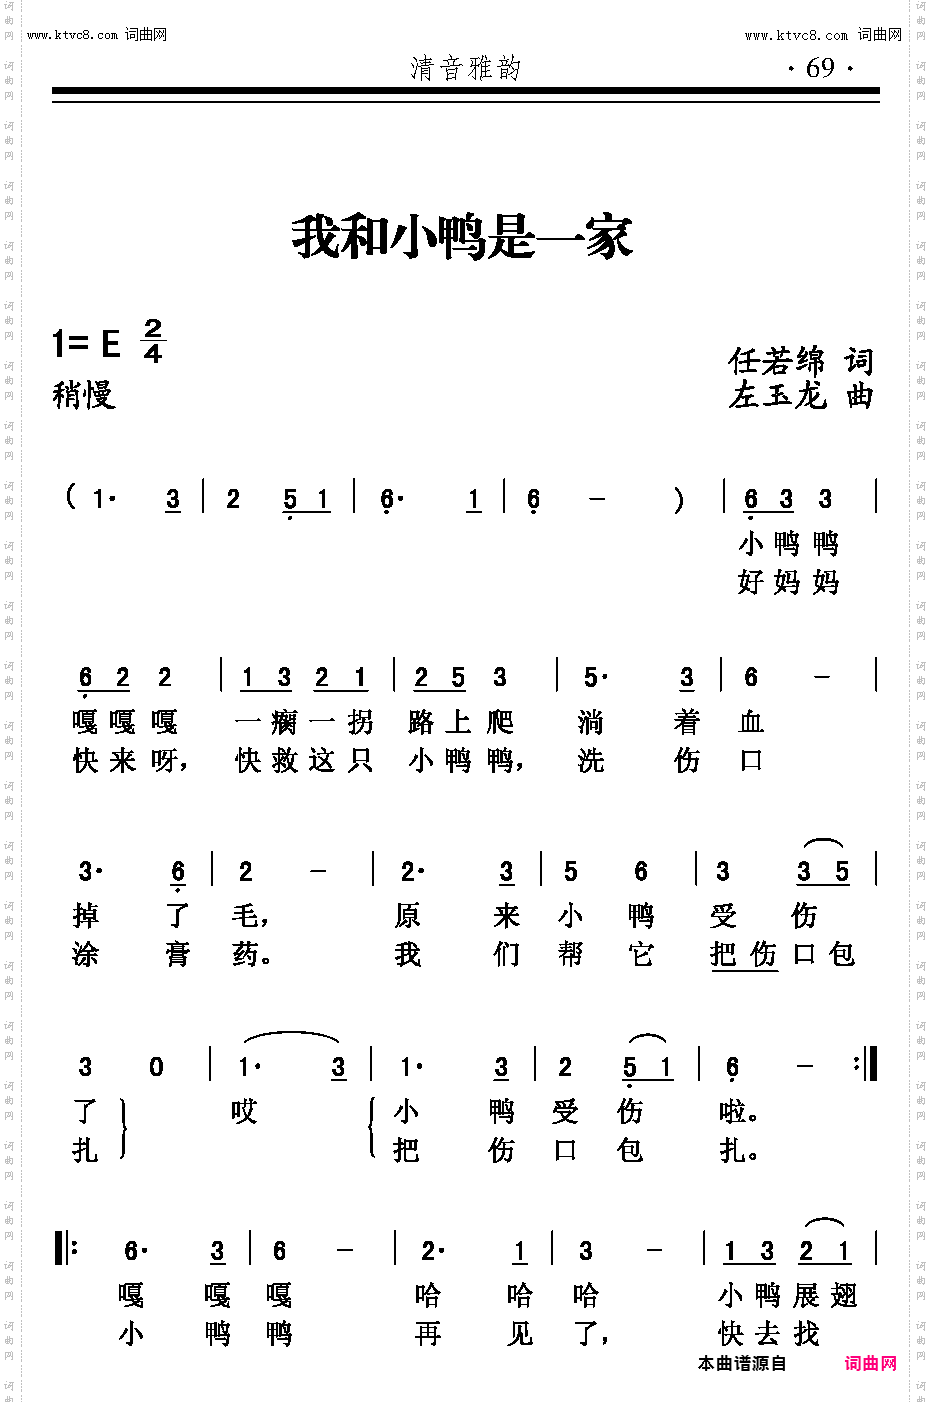 www.ktvc8.com 词曲网 www.ktvc8.com 词曲网
清音雅韵 · 69 ·
我和小鸭是一家
1= E 2/4
稍慢
任若绵 词
左玉龙 曲
( 1· 3 | 2 5 1 | 6· 1 | 6 – ) | 6 3 3 |
小鸭鸭
好妈妈
6 2 2 | 1 3 2 1 | 2 5 3 | 5· 3 | 6 – |
嘎嘎嘎 一瘸一拐 路上爬 淌着血
快来呀, 快救这只 小鸭鸭, 洗伤口
3· 6 | 2 – | 2· 3 | 5 6 | 3 3 5 |
掉了毛, 原来小鸭受伤
涂膏药。 我们帮它把伤口包
3 0 | 1· 3 | 1· 3 | 2 5 1 | 6 – :|
了} 哎 {小鸭受伤啦。
扎 把伤口包扎。
|: 6· 3 | 6 – | 2· 1 | 3 – | 1 3 2 1 |
嘎嘎嘎 哈哈哈 小鸭展翅
小鸭鸭 再见了, 快去找
本曲谱源自 词曲网
词曲网